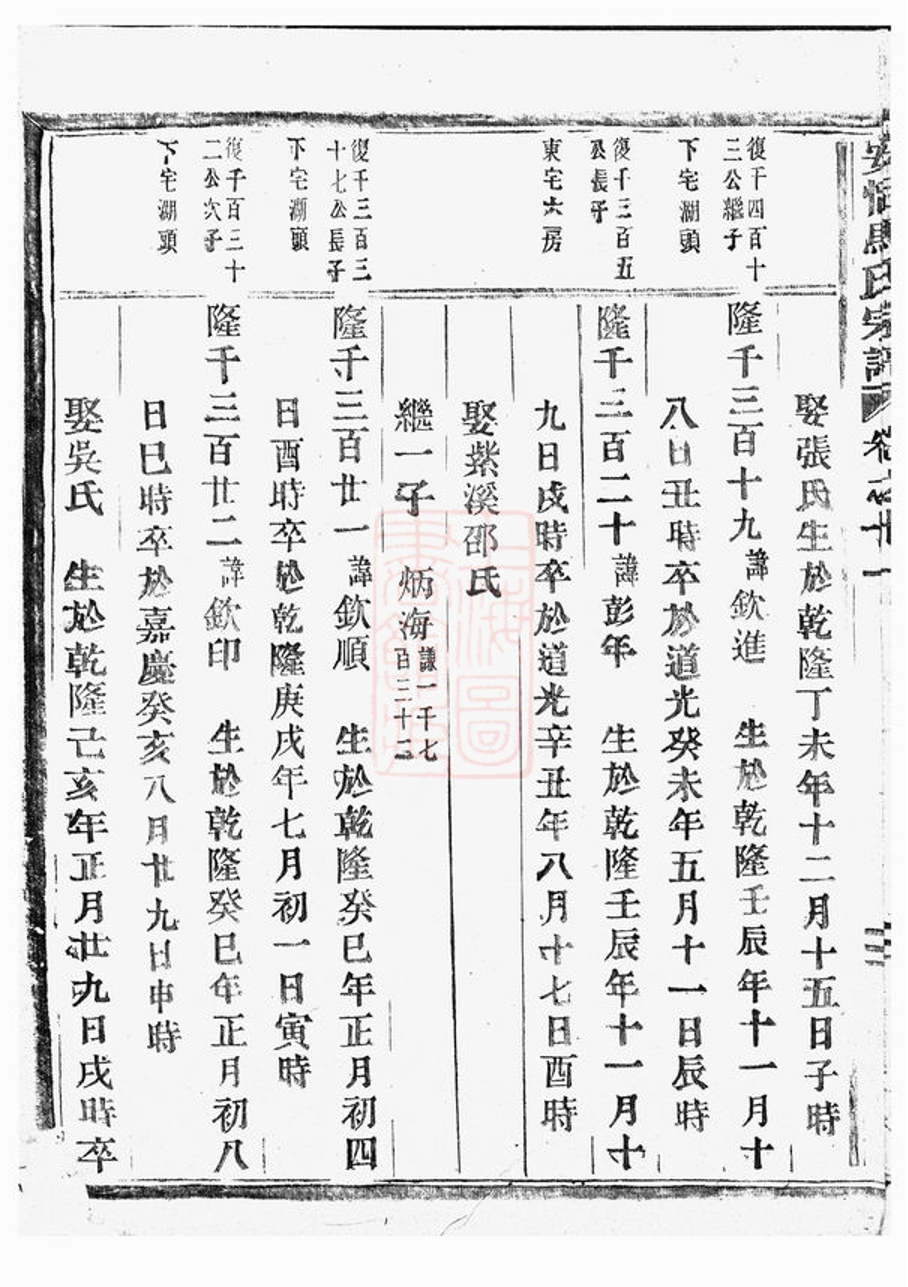 安恬馬氏宗譜 卷之十一
娶張氏生於乾隆丁未年十二月十五日子時
復千四百十
三公繼子
下宅湖頭
隆千三百十九諱欽進 生於乾隆壬辰年十一月十
八日丑時卒於道光癸未年五月十一日辰時
復千三百五
公長子
東宅六房
隆千三百二十諱彭年 生於乾隆壬辰年十一月十
九日戌時卒於道光辛丑年八月十七日酉時
娶紫溪邵氏
繼一子 炳海謙一千七百三十二
復千三百三
十七公長子
下宅湖頭
隆千三百廿一諱欽順 生於乾隆癸巳年正月初四
日酉時卒於乾隆庚戌年七月初一日寅時
復千百三十
二公次子
下宅湖頭
隆千三百廿二諱欽印 生於乾隆癸巳年正月初八
日巳時卒於嘉慶癸亥八月廿九日申時
娶吳氏 生於乾隆己亥年正月廿九日戌時卒